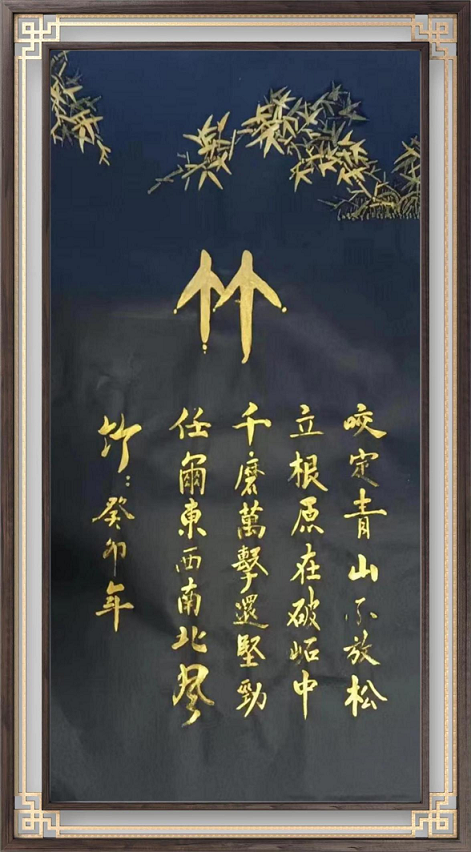 竹
咬定青山不放松
立根原在破岩中
千磨萬擊還堅勁
任爾東西南北風
竹：癸卯年